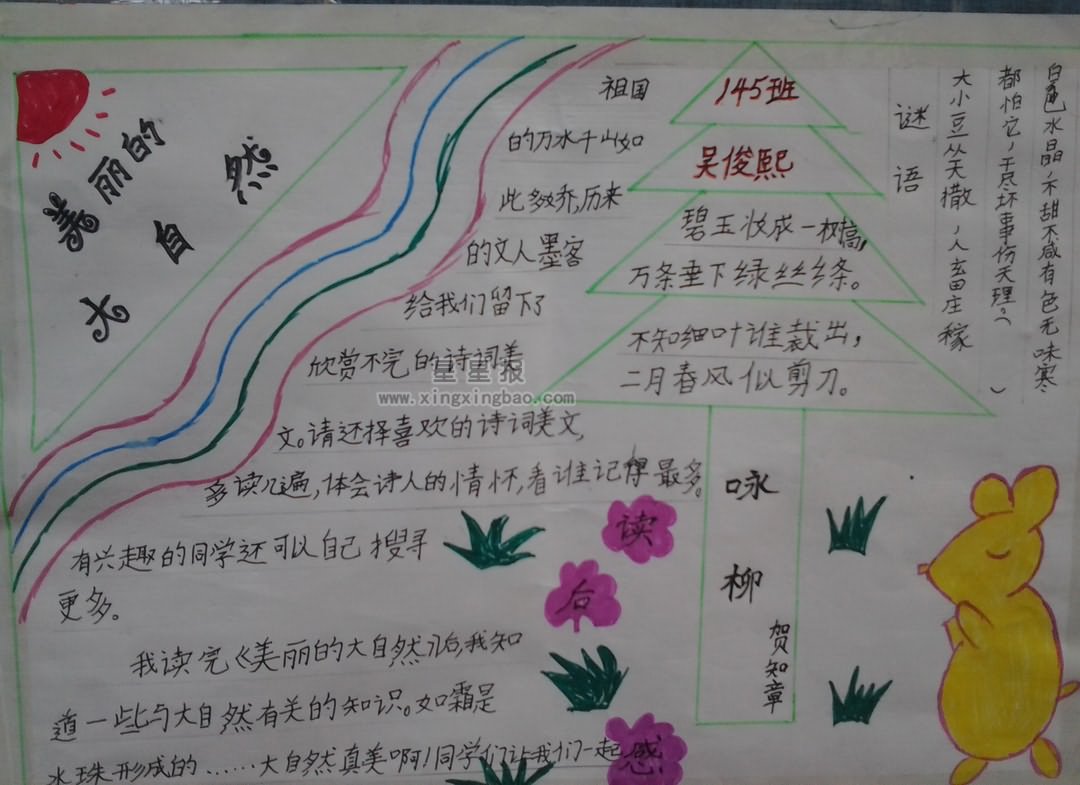 美丽的
大自然
祖国
的万水千山如
此多娇,历来
的文人墨客
给我们留下了
欣赏不完的诗词美
文。请选择喜欢的诗词美文,
多读几遍,体会诗人的情怀,看谁记得最多。
有兴趣的同学还可以自己搜寻
更多。
145班
吴俊熙
碧玉妆成一树高,
万条垂下绿丝绦。
不知细叶谁裁出,
二月春风似剪刀。
咏柳
贺知章
谜语
大小豆从天撒,人畜庄稼
都怕它,干尽坏事伤天理。()
白色水晶,不甜不咸有色无味寒
读后感
我读完《美丽的大自然》后,我知
道一些与大自然有关的知识。如霜是
水珠形成的……大自然真美啊!同学们让我们一起
星星报
www.xingxingbao.com